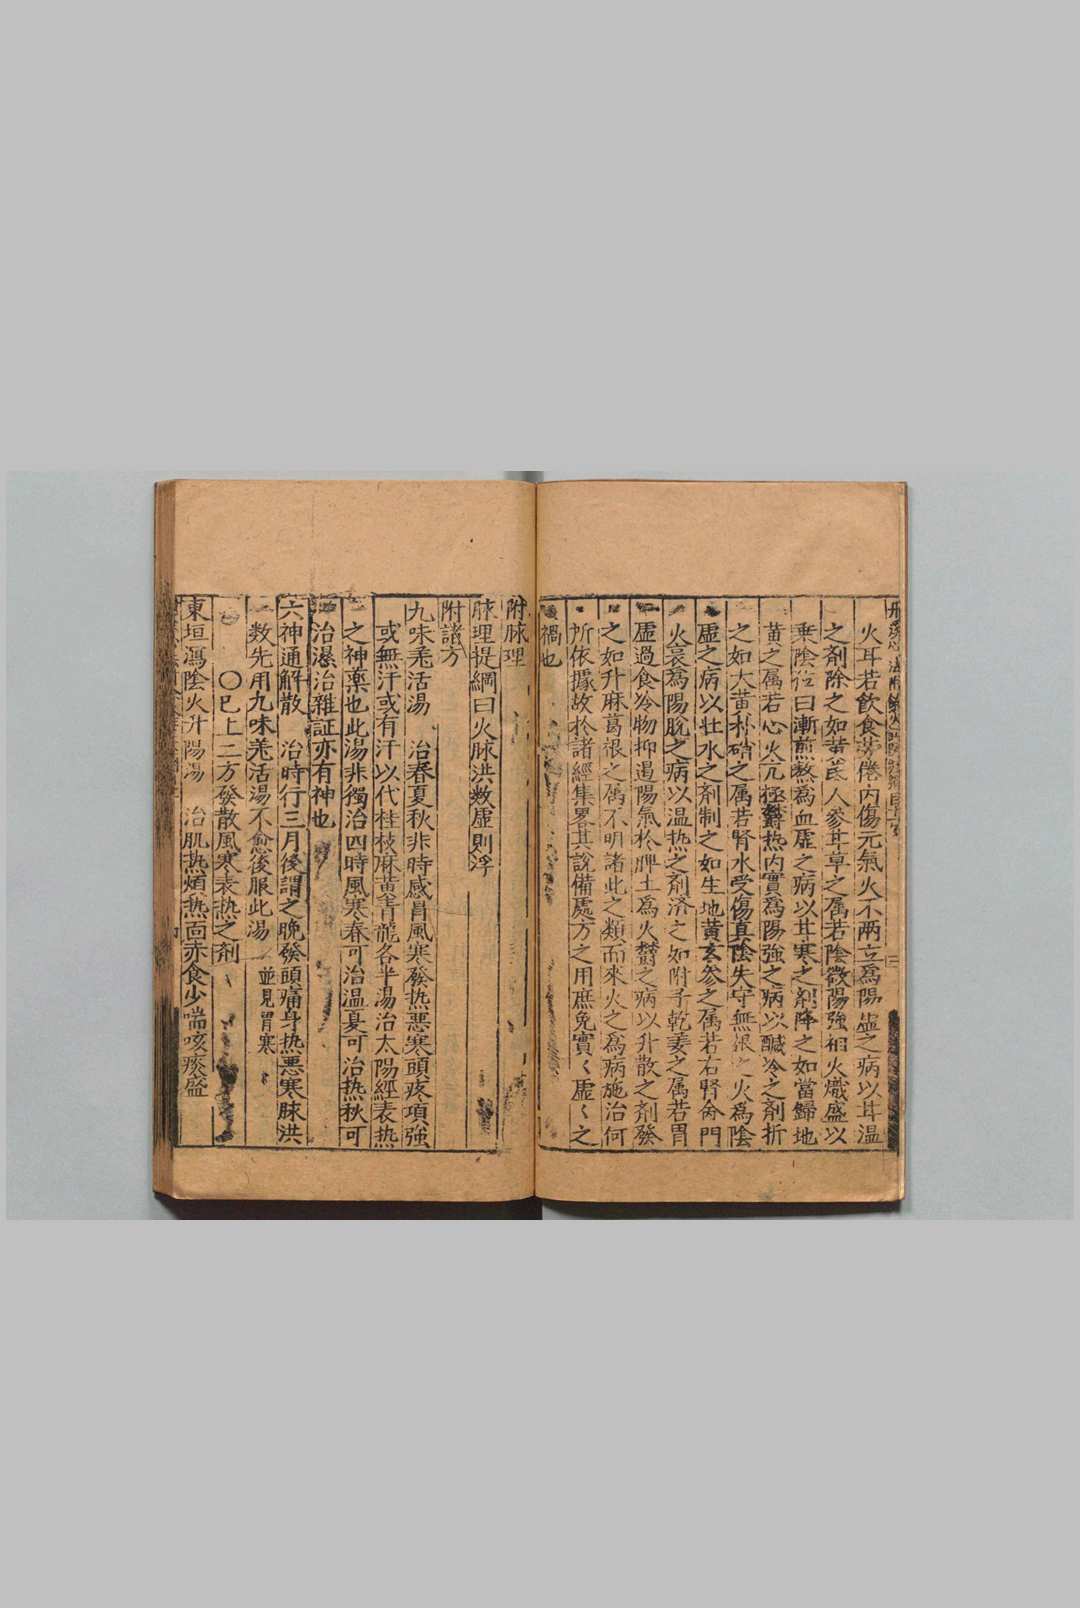 火耳若飲食勞倦內傷元氣火不兩立爲陽虛之病以甘溫
之劑除之如黃芪人參甘草之属若陰微陽強相火熾盛以
乗陰位曰漸煎熬為血虛之病以甘寒之劑降之如當歸地
黃之属若心火亢極欝热內實爲陽強之病以鹹冷之劑折
之如大黃朴硝之属若腎水受傷真陰失守無根之火為陰
虛之病以壮水之劑制之如生地黃玄参之属若右腎命門
火衰爲陽脫之病以温热之劑済之如附子乾姜之属若胃
虛過食冷物抑遏陽氣於脾土爲火欝之病以升散之劑發
之如升麻葛根之属不明諸此之類而來火之為病施治何
所依據故於諸經集畧其說備處方之用庶免實〻虛〻之
禍也
附脉理
脉理提綱曰火脉洪数虛則浮
附諸方
九味羌活湯 治春夏秋非時感冒風寒發热悪寒頭疼項強
或無汗或有汗以代桂枝麻黃青龍各半湯治太陽經表热
之神藥也此湯非獨治四時風寒春可治温夏可治热秋可
治濕治雜証亦有神也
六神通解散 治時行三月後謂之晩發頭痛身热悪寒脉洪
数先用九味羌活湯不愈後服此湯 並見胃寒
〇已上二方發散風寒表热之剤
東垣瀉陰火升陽湯 治肌热煩热面赤食少喘咳痰盛